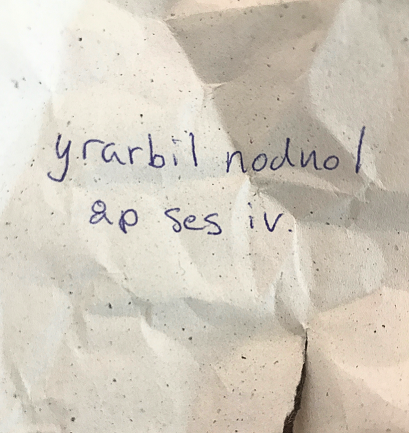 yrarbil nodnol
ap ses iv.